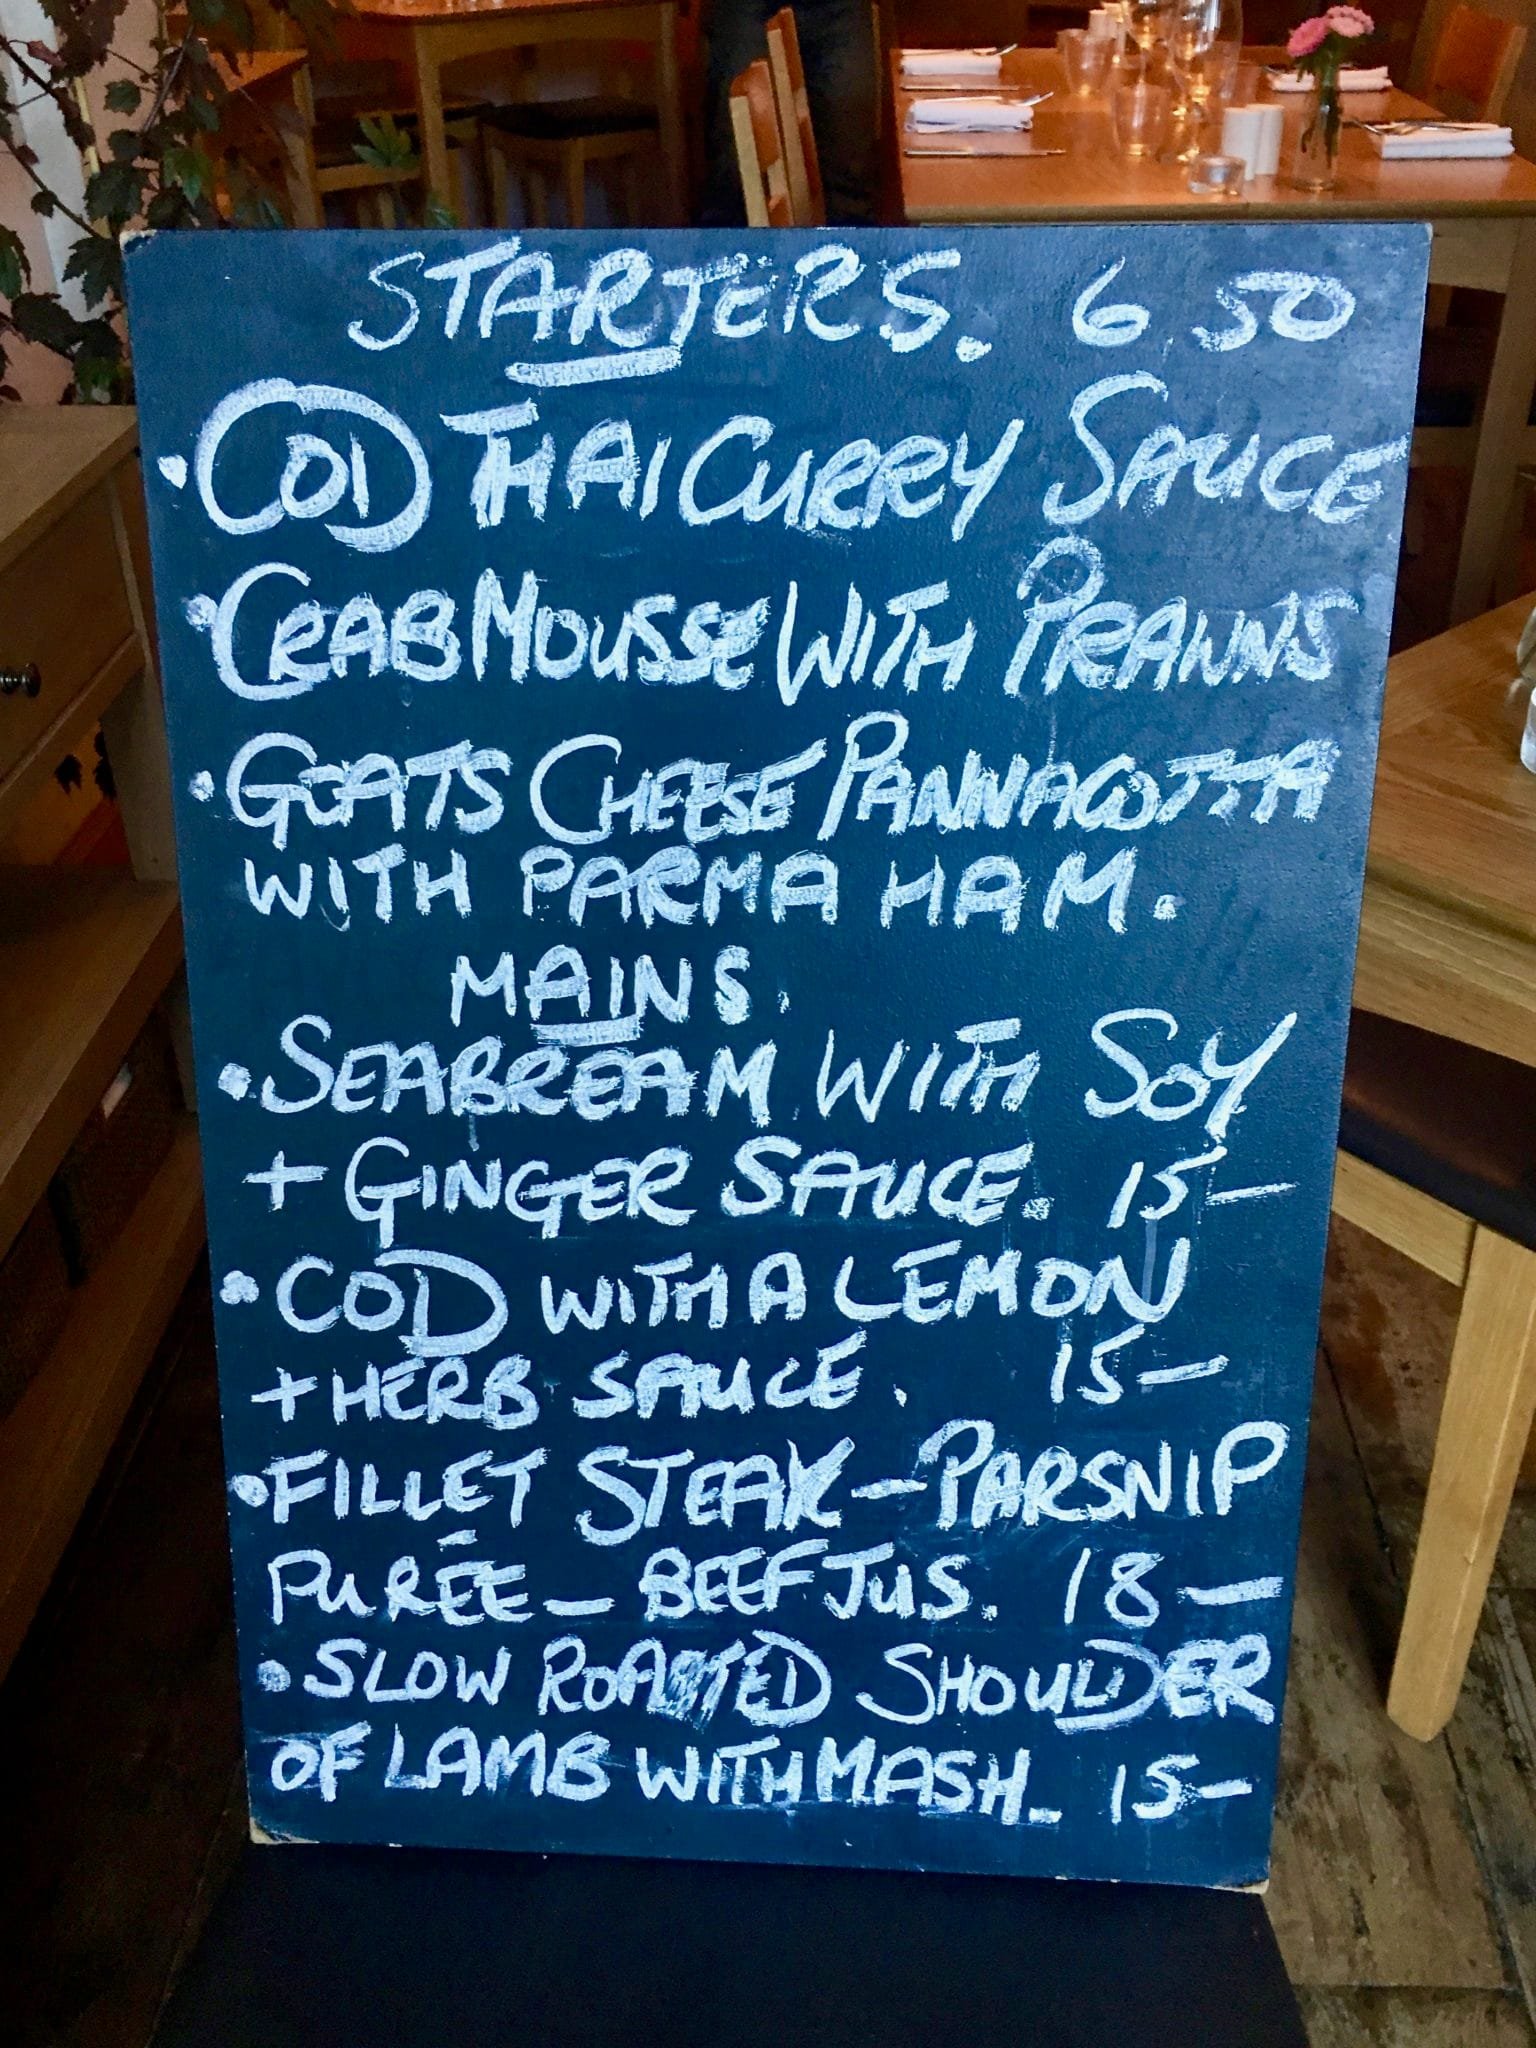 STARTERS. 6.50
• COD THAI CURRY SAUCE
• CRAB MOUSSE WITH PRAWNS
• GOATS CHEESE PANNACOTTA
WITH PARMA HAM.
MAINS.
• SEABREAM WITH SOY
+ GINGER SAUCE. 15—
• COD WITH A LEMON
+ HERB SAUCE. 15—
• FILLET STEAK — PARSNIP
PURÉE — BEEF JUS. 18—
• SLOW ROASTED SHOULDER
OF LAMB WITH MASH. 15—